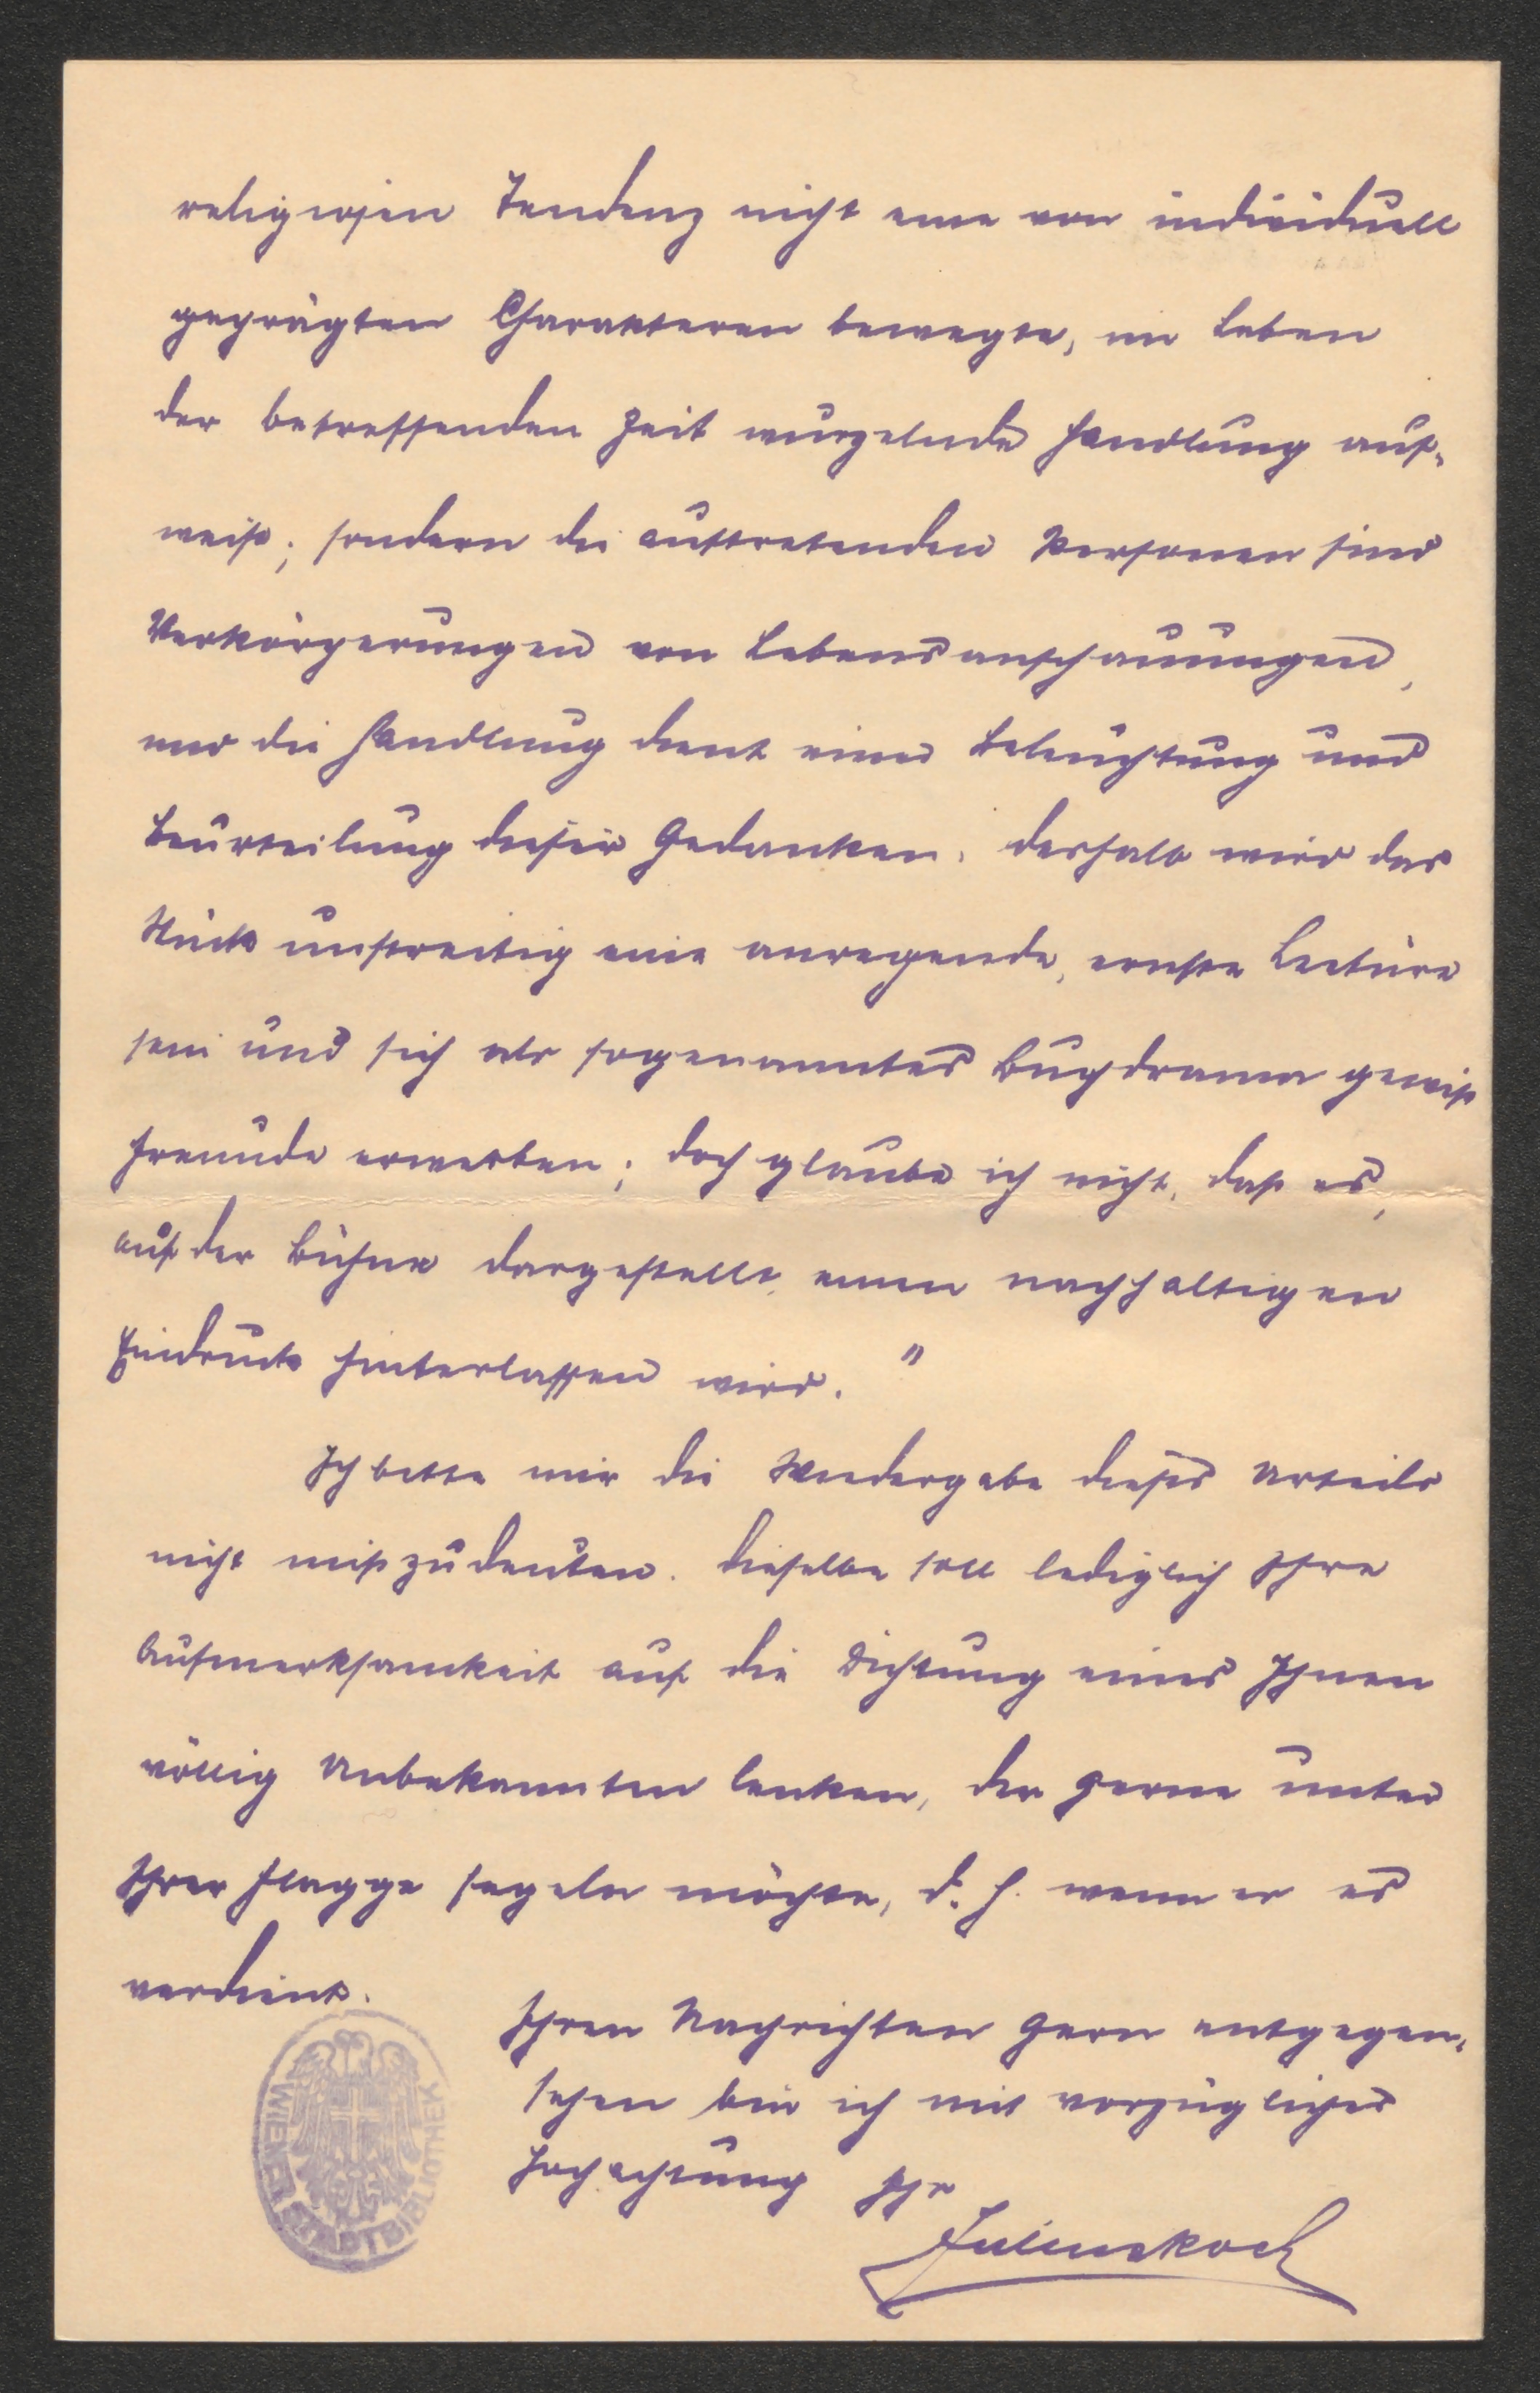 religiösen Tendenz nicht eine von individuell
geprägten Charakteren bewegte, im Leben
der betreffenden Zeit wurzelnde Handlung auf-
weist; sondern die auftretenden Personen sind
Verkörperungen von Lebensanschauungen,
und die Handlung dient einer Beleuchtung und
Beurteilung dieser Gedanken. Deshalb wird das
Stück unstreitig eine anregende, ernste Lectüre
sein und sich als sogenanntes Buchdrama gewiß
Freunde erwerben; doch glaube ich nicht, daß es,
auf der Bühne dargestellt, einen nachhaltigen
Eindruck hinterlassen wird."
Ich bitte mir die Wiedergabe dieses Urteils
nicht mißzudeuten. Dieselbe soll lediglich Ihre
Aufmerksamkeit auf die Dichtung eines Ihnen
völlig Unbekannten lenken, der gerne unter
Ihrer Flagge segeln möchte, d. h. wenn er es
verdient.
Ihren Nachrichten gern entgegen-
sehen bin ich mit vorzüglicher
Hochachtung Ihr
WIENER STADTBIBLIOTHEK